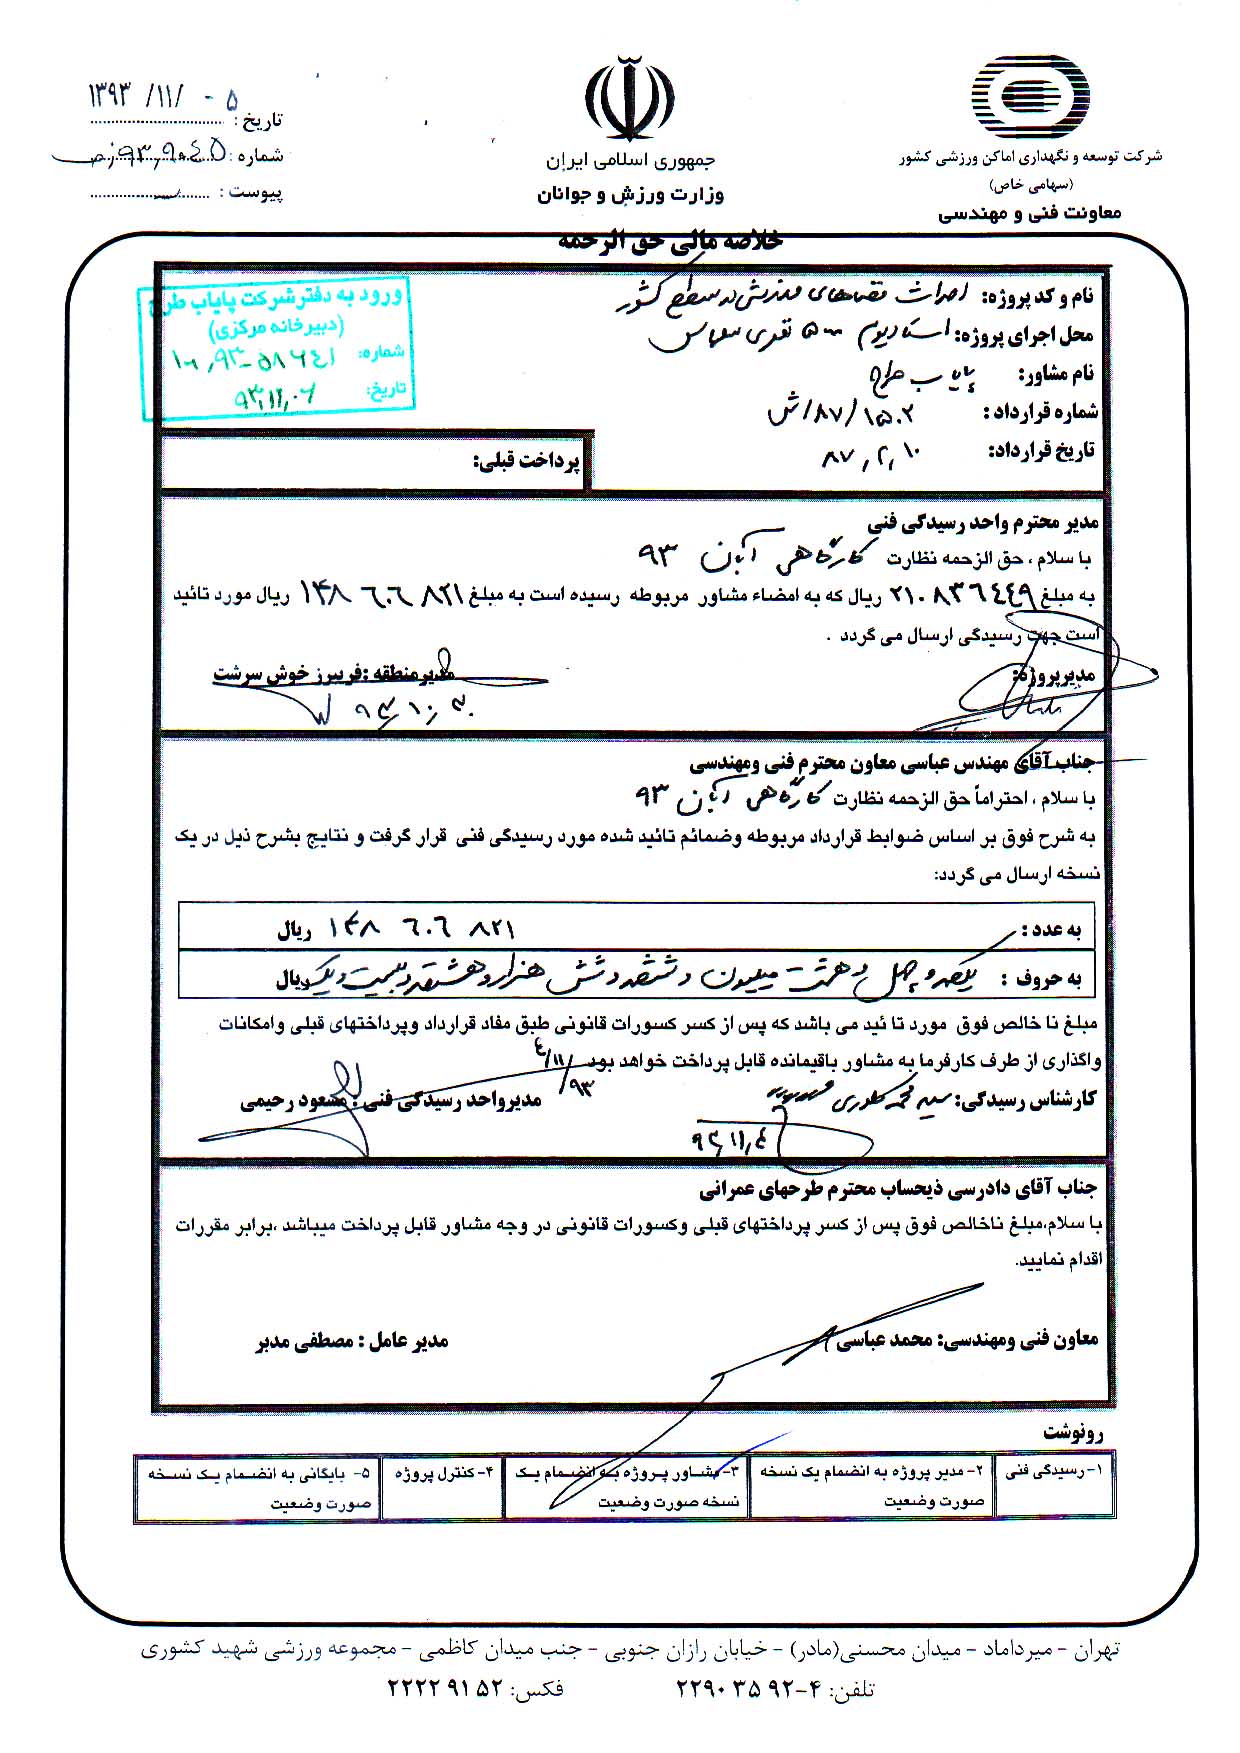 شرکت توسعه و نگهداری اماکن ورزشی کشور
(سهامی خاص)
معاونت فنی و مهندسی
جمهوری اسلامی ایران
وزارت ورزش و جوانان
۱۳۹۳/۱۱/۰۵
تاریخ :
شماره :
پیوست :
خلاصه مالی حق الزحمه
نام و کد پروژه: احداث فضاهای ورزشی در سطح کشور
محل اجرای پروژه: استادیوم ۵۰۰۰ نفری
نام مشاور: پایاب طرح
شماره قرارداد : ۱۵۰۲/۸۷/ش
تاریخ قرارداد: ۸۷,۲,۱۰
ورود به دفتر شرکت پایاب طرح
(دبیرخانه مرکزی)
شماره: ۱۰۰,۹۳-۵۸۶۴۱
تاریخ: ۹۳,۱۱,۰۶
پرداخت قبلی:
مدیر محترم واحد رسیدگی فنی
با سلام ، حق الزحمه نظارت کارگاهی آبان ۹۳
به مبلغ ۲۱۰۸۳۶۴۴۹ ریال که به امضاء مشاور مربوطه رسیده است به مبلغ ۱۴۸۶۰۶۸۲۱ ریال مورد تائید
است جهت رسیدگی ارسال می گردد .
مدیرپروژه:
مدیرمنطقه :فریبرز خوش سرشت
۹۳,۱۰,۳۰
جناب آقای مهندس عباسی معاون محترم فنی ومهندسی
با سلام ، احتراماً حق الزحمه نظارت کارگاهی آبان ۹۳
به شرح فوق بر اساس ضوابط قرارداد مربوطه وضمائم تائید شده مورد رسیدگی فنی قرار گرفت و نتایج بشرح ذیل در یک
نسخه ارسال می گردد:
به عدد : ۱۴۸ ۶۰۶ ۸۲۱ ریال
به حروف : یکصد و چهل و هشت میلیون و ششصد و شش هزار و هشتصد و بیست و یک ریال
مبلغ نا خالص فوق مورد تا ئید می باشد که پس از کسر کسورات قانونی طبق مفاد قرارداد وپرداختهای قبلی وامکانات
واگذاری از طرف کارفرما به مشاور باقیمانده قابل پرداخت خواهد بود.
۹۳/۱۱/۴
کارشناس رسیدگی: سید محمد
مدیرواحد رسیدگی فنی : مسعود رحیمی
۹۳,۱۱,۴
جناب آقای دادرسی ذیحساب محترم طرحهای عمرانی
با سلام،مبلغ ناخالص فوق پس از کسر پرداختهای قبلی وکسورات قانونی در وجه مشاور قابل پرداخت میباشد ،برابر مقررات
اقدام نمایید.
معاون فنی ومهندسی: محمد عباسی
مدیر عامل : مصطفی مدبر
رونوشت
۱-رسیدگی فنی
۲- مدیر پروژه به انضمام یک نسخه
صورت وضعیت
۳-مشاور پروژه به انضمام یک
نسخه صورت وضعیت
۴- کنترل پروژه
۵- بایگانی به انضمام یک نسخه
صورت وضعیت
تهران - میرداماد - میدان محسنی(مادر) - خیابان رازان جنوبی - جنب میدان کاظمی - مجموعه ورزشی شهید کشوری
تلفن: ۴-۲۲۹۰۳۵۹۲
فکس: ۲۲۲۲۹۱۵۲